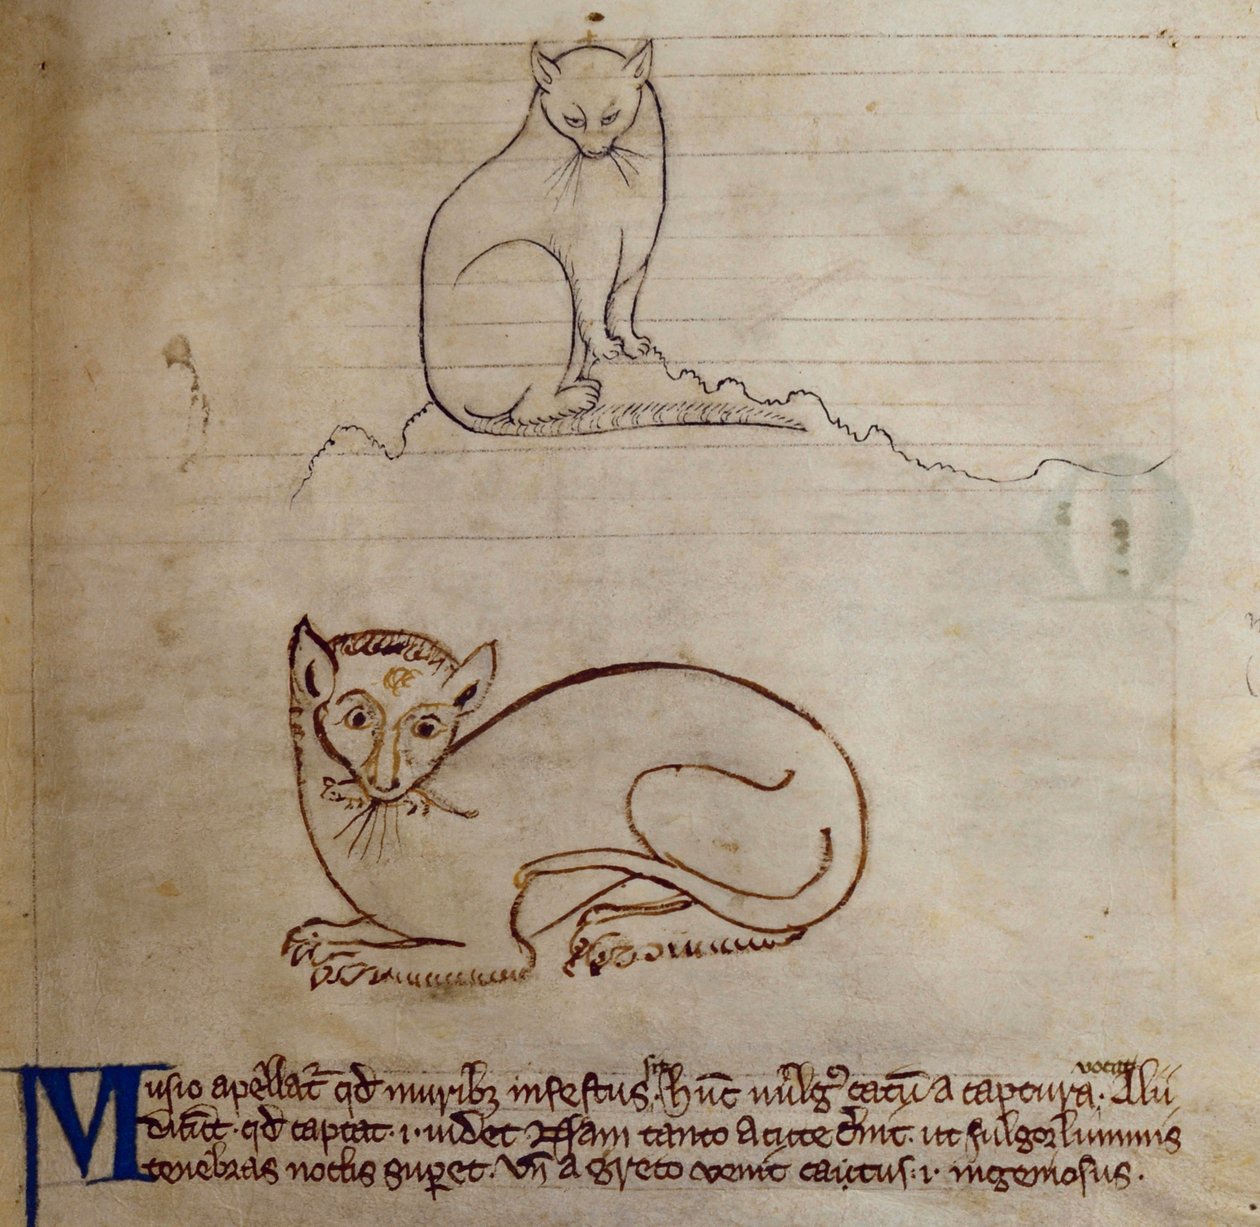 Musio apellat̄ qd̄ muribꝫ infestus sit. hūc uulgꝰ catū a captura vocat. Alii
dicūt. qd̄ captat .i. uidet. Nam tanto acute c̄nit. ut fulgore luminis
tenebras noctis suꝑet. Vn̄ a greco venit catus .i. ingeniosus.